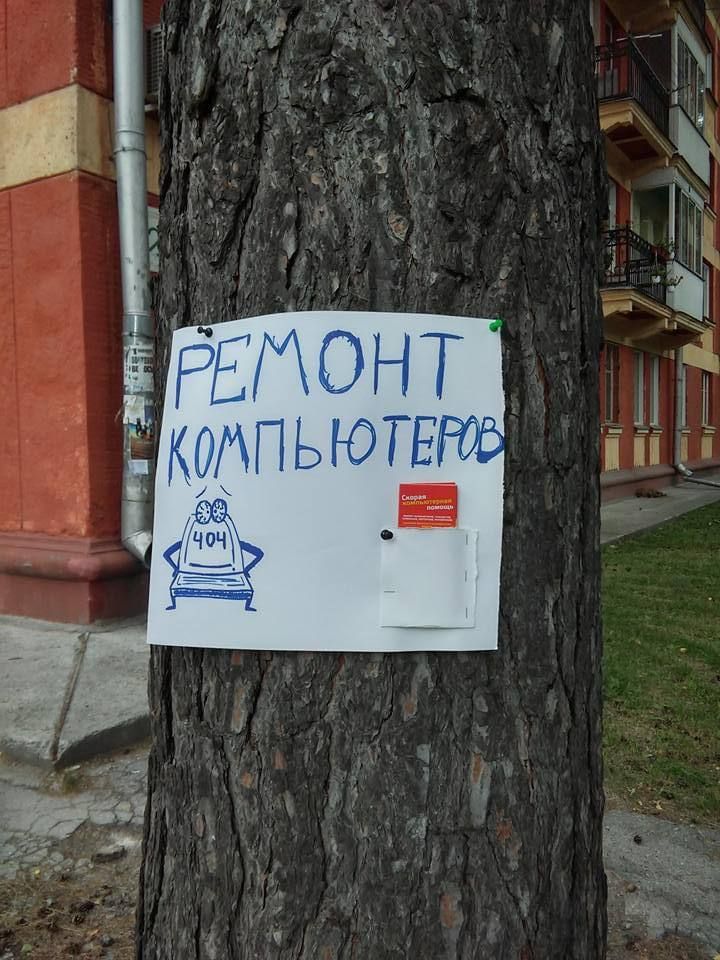 РЕМОНТ
КОМПЬЮТЕРОВ
404
Скорая
компьютерная
помощь